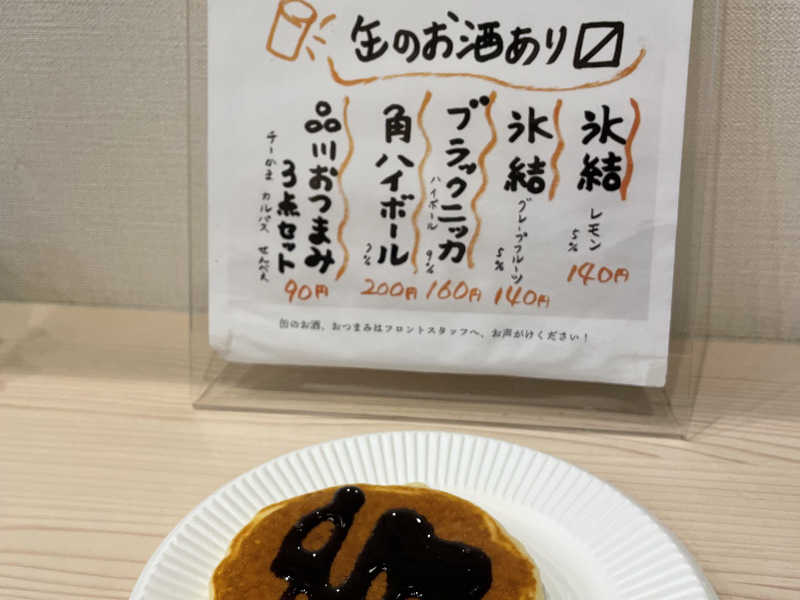 缶のお酒あり〼
氷結
レモン
5%
140円
氷結
グレープフルーツ
5%
140円
ブラックニッカ
ハイボール
9%
160円
角ハイボール
7%
200円
品川おつまみ
3点セット
チーかま カルパス せんべえ
90円
缶のお酒、おつまみはフロントスタッフへ、お声がけください！